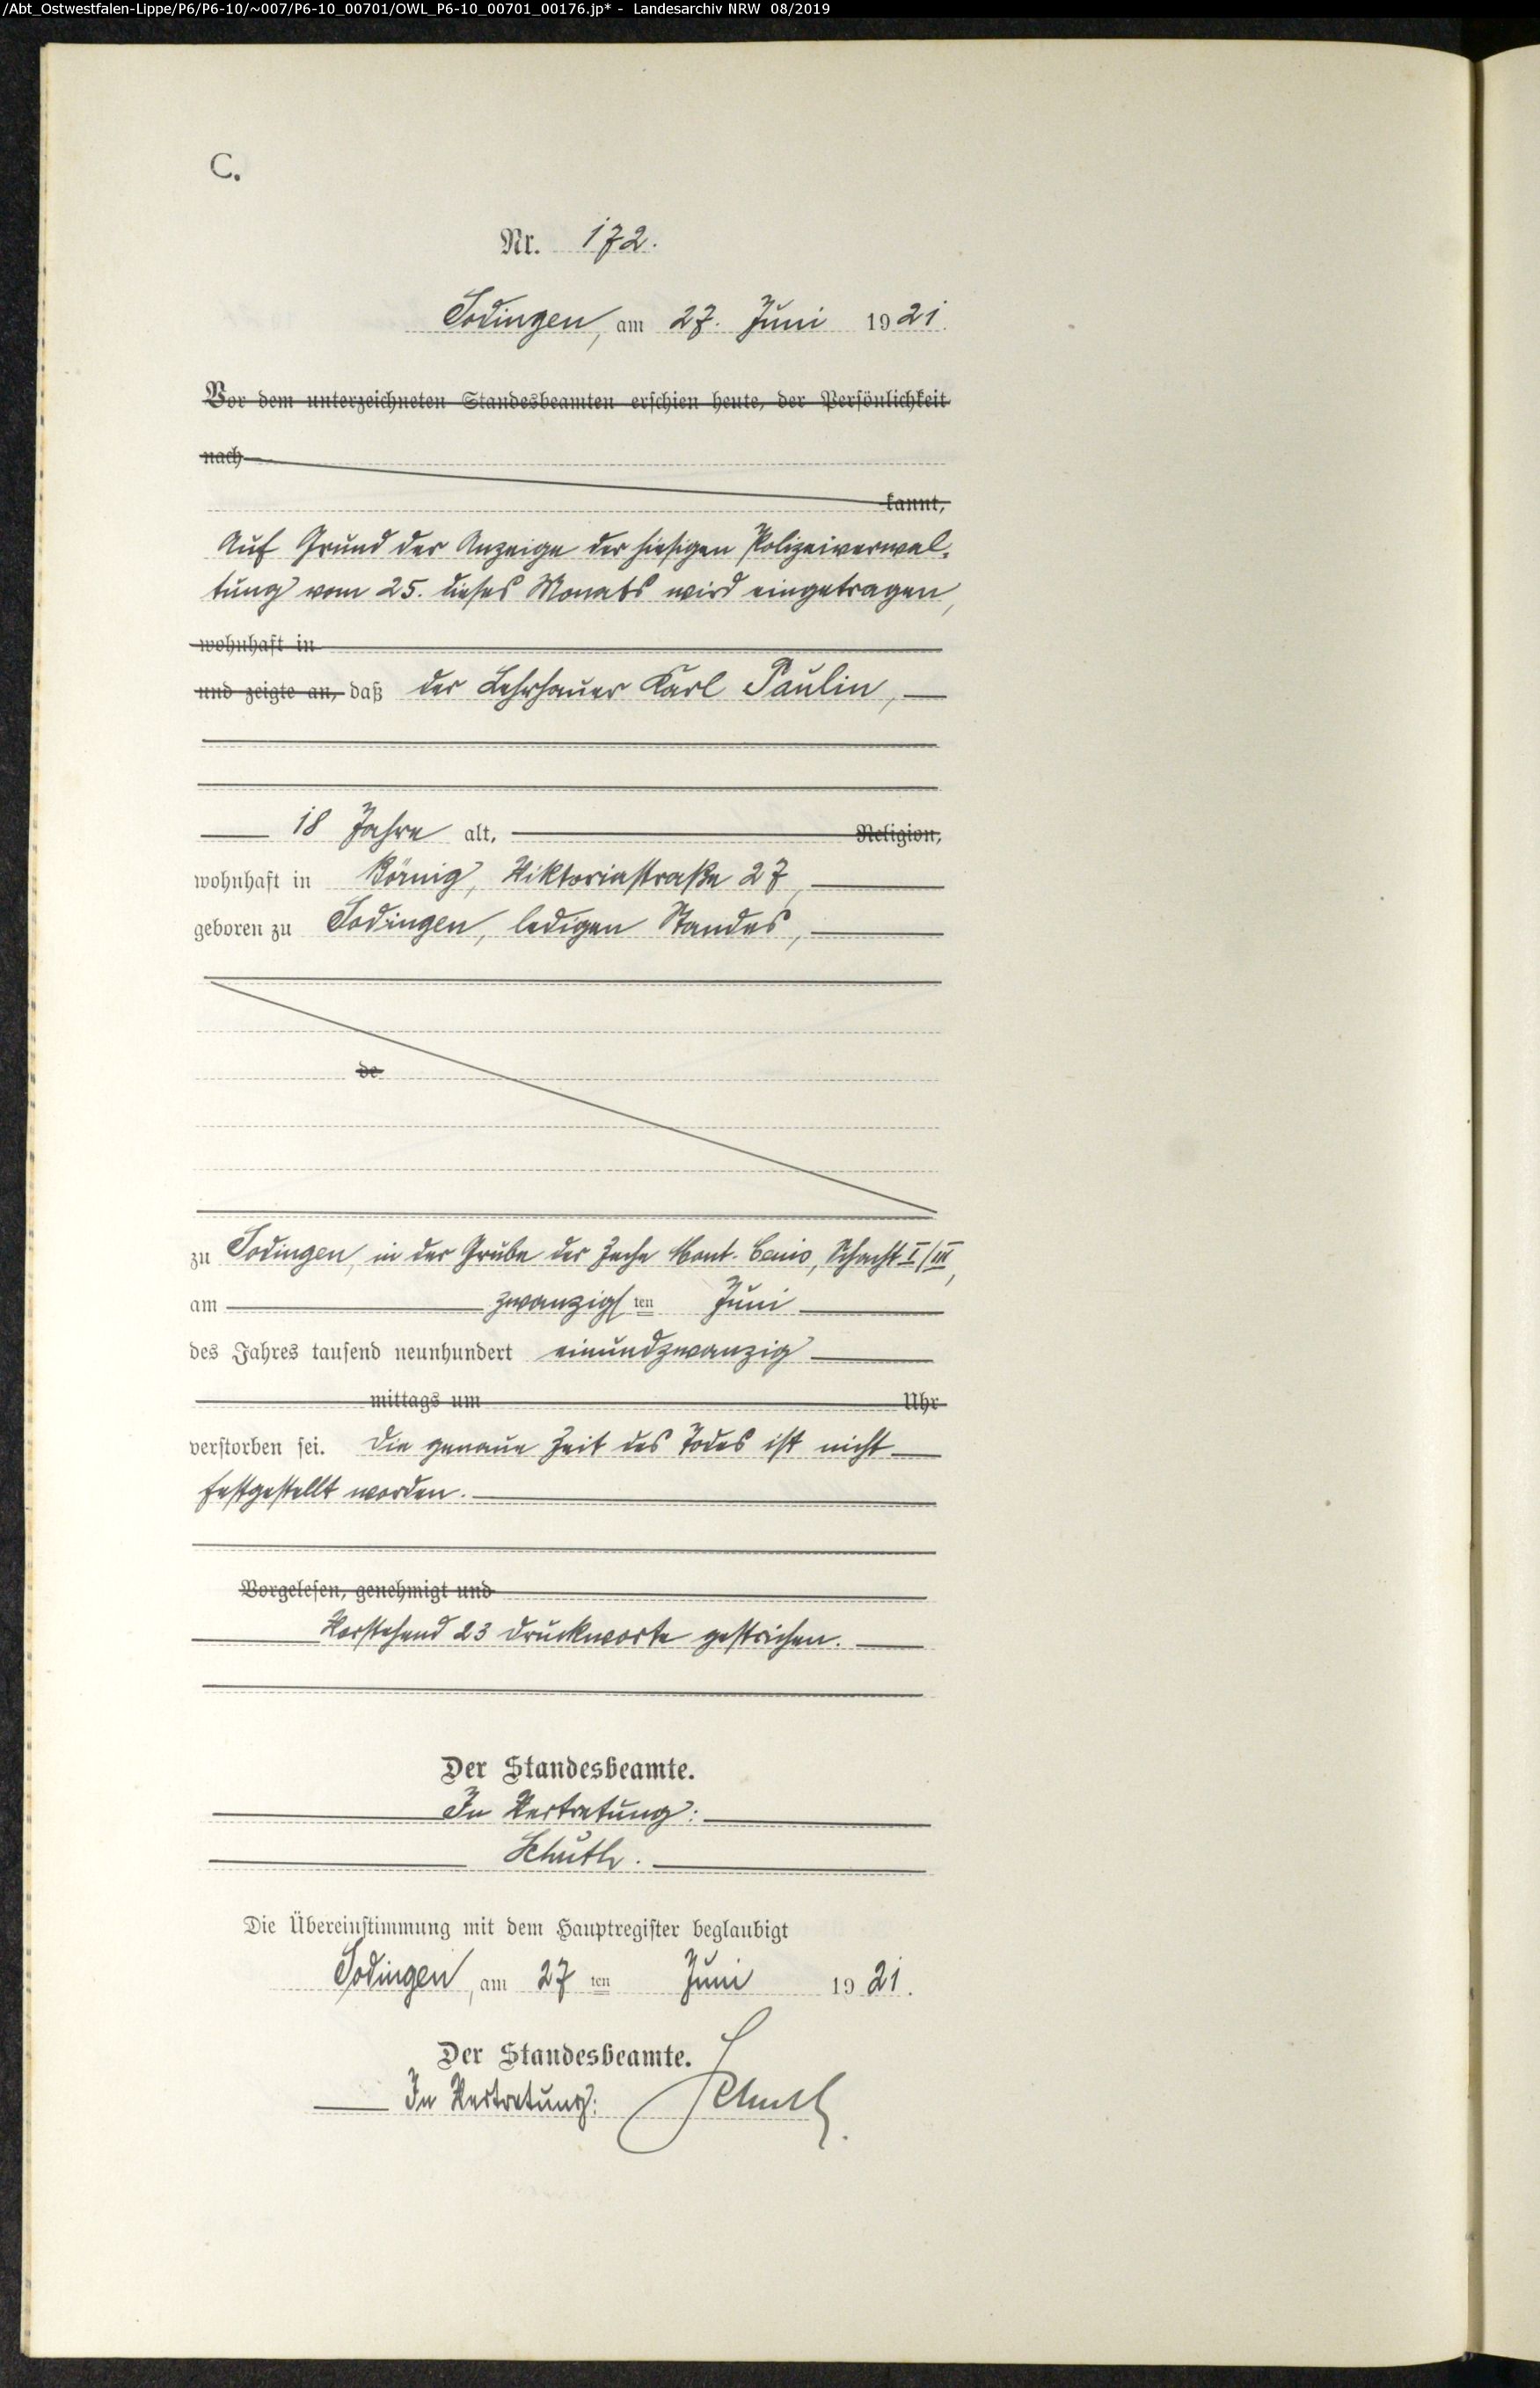 /Abt_Ostwestfalen-Lippe/P6/P6-10/~007/P6-10_00701/OWL_P6-10_00701_00176.jp* - Landesarchiv NRW 08/2019
C.
Nr. 172.
Sodingen, am 27. Juni 1921.
Vor dem unterzeichneten Standesbeamten erschien heute, der Persönlichkeit
nach
kannt,
Auf Grund der Anzeige der hiesigen Polizeiverwal-
tung vom 25. dieses Monats wird eingetragen,
wohnhaft in
und zeigte an, daß der Lehrhauer Karl Paulin,
18 Jahre alt, Religion,
wohnhaft in Börnig, Viktoriastraße 27,
geboren zu Sodingen, ledigen Standes,
de
zu Sodingen, in der Grube der Zeche Mont-Cenis, Schacht I/III,
am zwanzigsten Juni
des Jahres tausend neunhundert einundzwanzig
mittags um Uhr
verstorben sei. Die genaue Zeit des Todes ist nicht
festgestellt worden.
Vorgelesen, genehmigt und
Vorstehend 23 Druckworte gestrichen.
Der Standesbeamte.
In Vertretung:
Schuth.
Die Übereinstimmung mit dem Hauptregister beglaubigt
Sodingen, am 27ten Juni 1921.
Der Standesbeamte.
In Vertretung: Schuth.